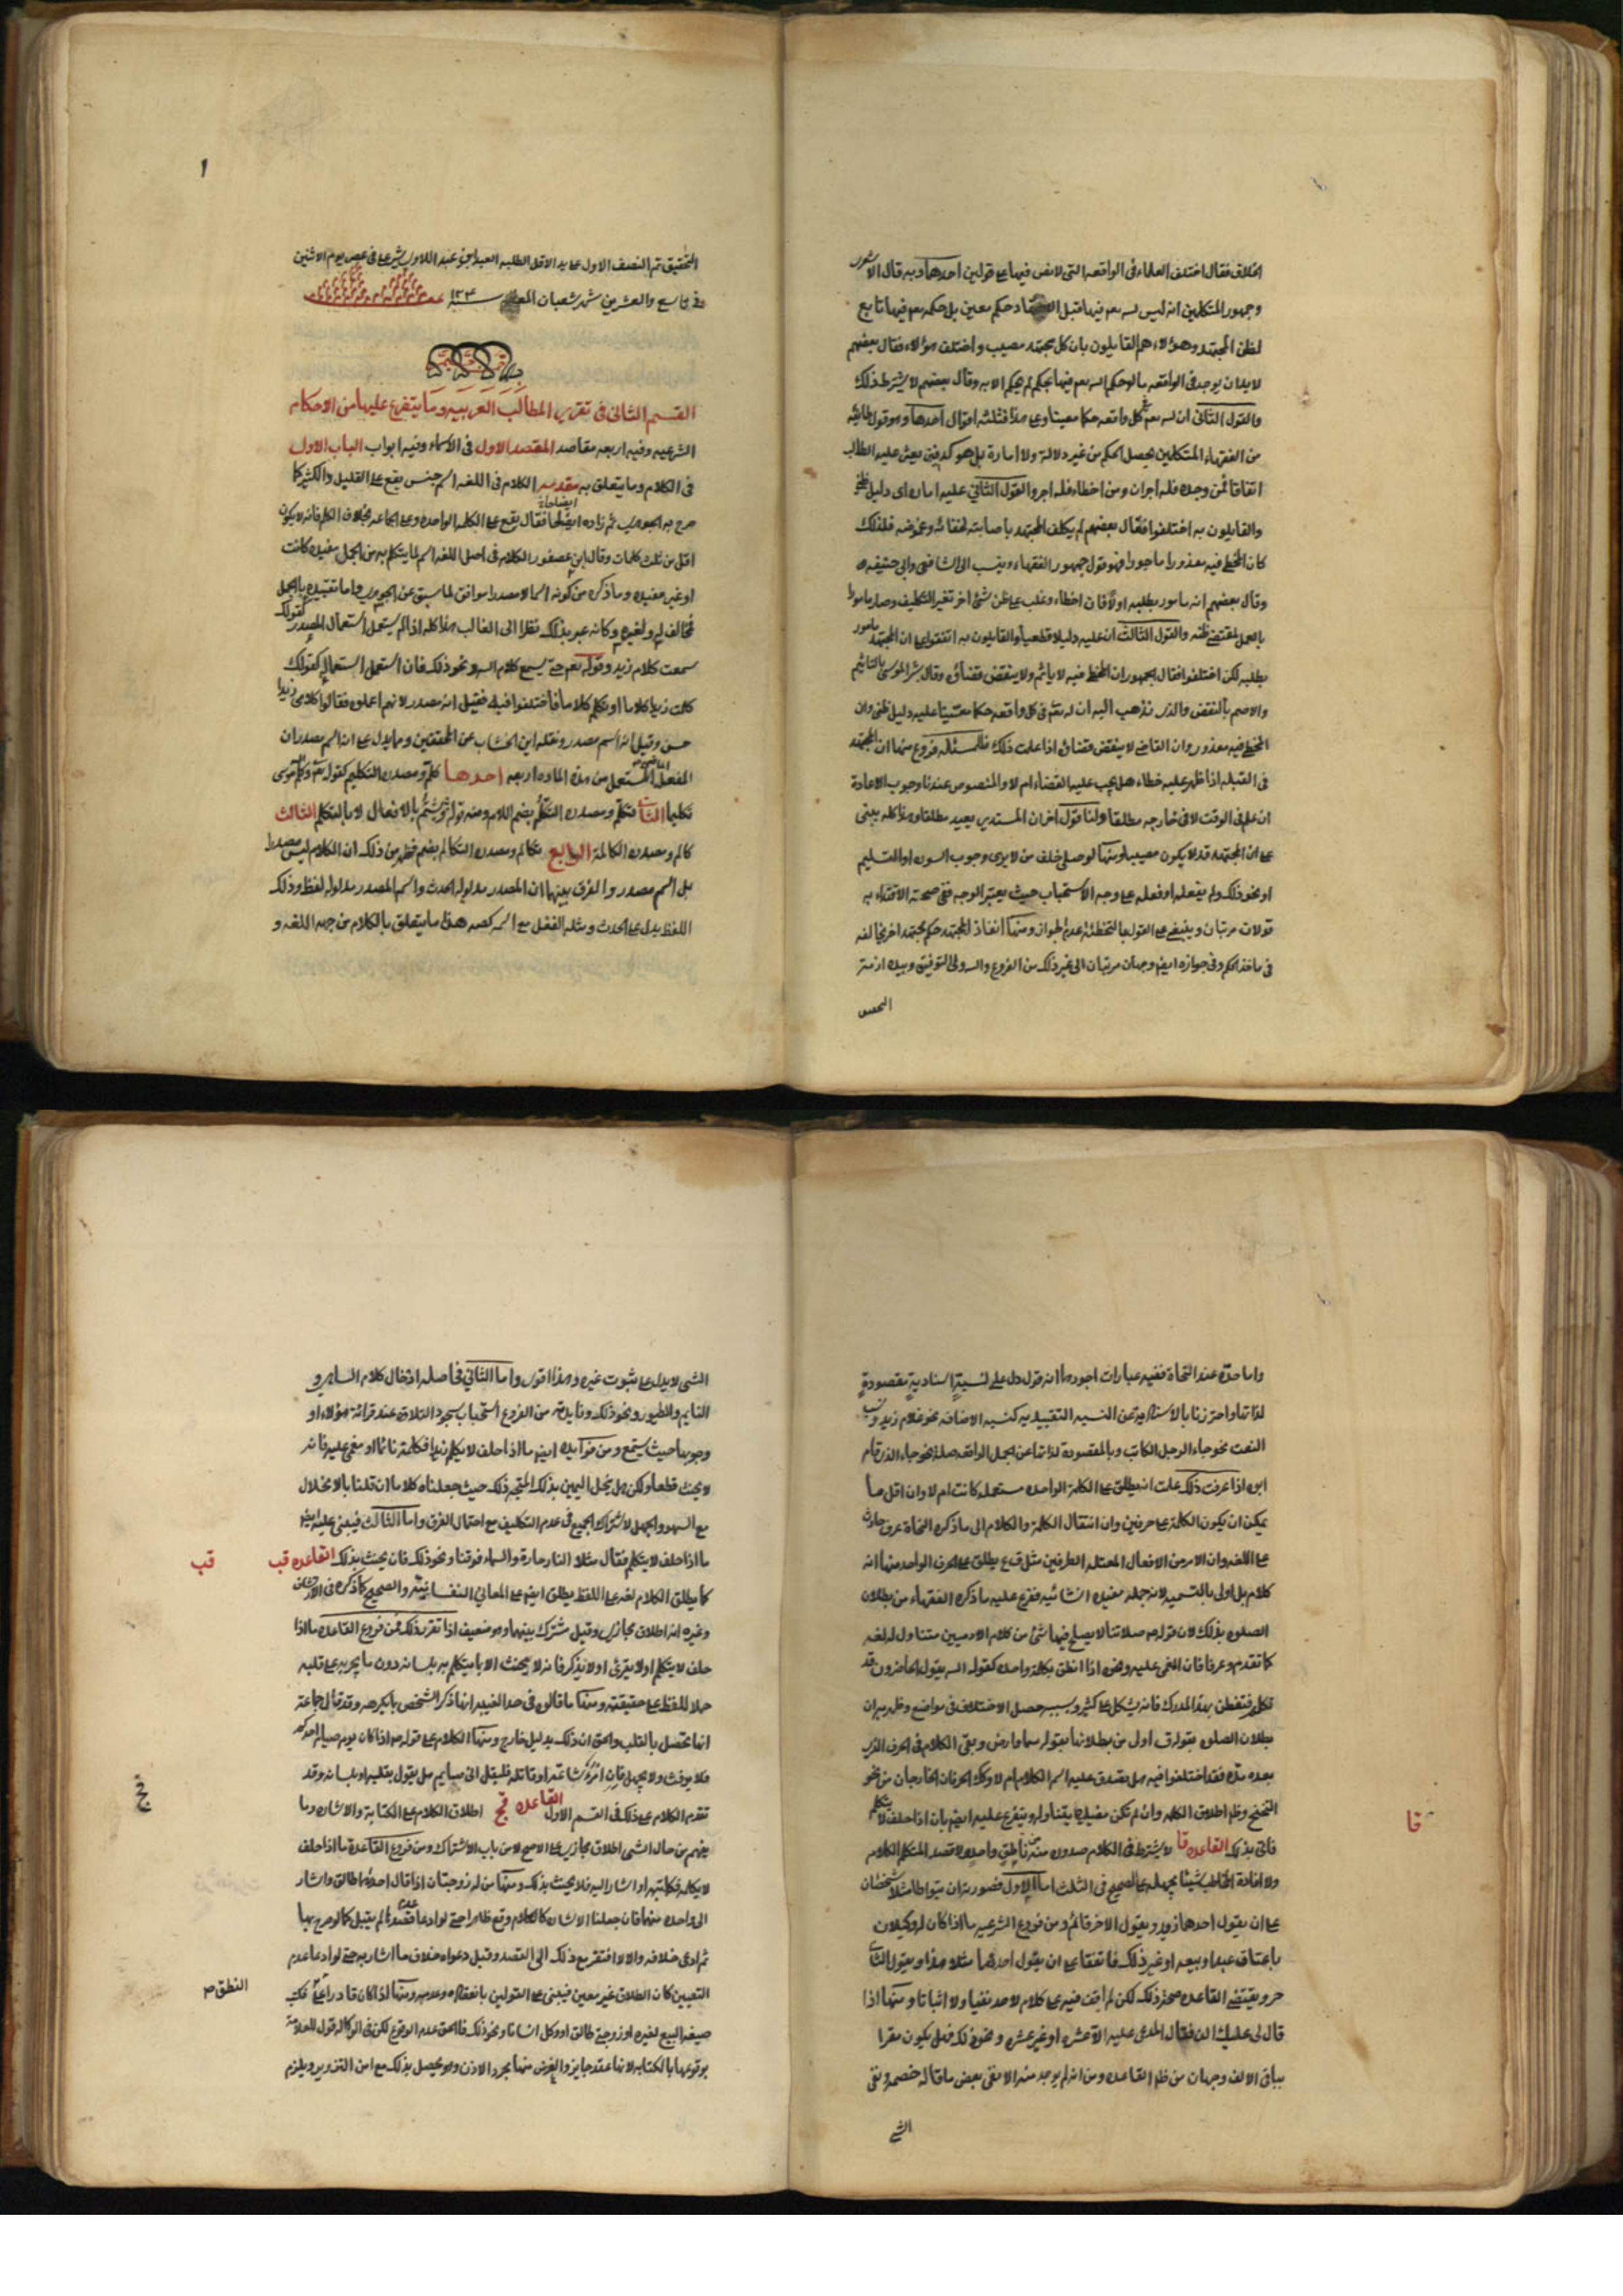 الخلاف فقال اختلف العلماء فى الواقعه التى لا نص فيها على قولين احدهما وبه قال الاشعرى
وجمهور المتكلمين انه ليس لله تعم فيها قبل الاجتهاد حكم معين بل حكمه تعم فيها تابع
لظن المجتهد وهؤلاء هم القايلون بان كل مجتهد مصيب واختلف هؤلاء فقال بعضهم
لابد ان يوجد فى الواقعه ما لو حكم الله تعم فيها بحكم لم يحكم الا به وقال بعضهم لا يشترط ذلك
والقول الثانى ان لله تعم فى كل واقعه حكما معينا وعلى هذا فثلثه اقوال احدها وهو قول طايفه
من الفقهاء المتكلمين يحصل الحكم من غير دلالة ولا امارة بل هو كدفين يعثر عليه الطالب
اتفاقا فمن وجده فله اجران ومن اخطاء فله اجر والقول الثانى عليه اماره اى دليل ظنى
والقايلون به اختلفوا فقال بعضهم لم يكلف المجتهد باصابته لخفائه وغموضه فلذلك
كان المخطى فيه معذورا ماجورا وهو قول جمهور الفقهاء وينسب الى الشافعى وابى حنيفه
وقال بعضهم انه مامور بطلبه اولا فان اخطاء وغلب على ظن شئ اخر تغير التكليف وصار مامورا
بالعمل بمقتضى ظنه والقول الثالث ان عليه دليلا قطعيا والقايلون به اتفقوا على ان المجتهد مامور
بطلبه لكن اختلفوا فقال الجمهور ان المخطى فيه لا ياثم ولا ينقض قضاؤه وقال بشر المريسى بالتاثيم
والاصم بالنقض والذى نذهب اليه ان لله تعم فى كل واقعه حكما معينا عليه دليل ظنى وان
المخطى فيه معذور وان القاضى لا ينقض قضاؤه اذا علمت ذلك فللمسئله فروع منها ان المجتهد
فى القبله اذا ظهر عليه خطاءه هل يجب عليه القضاء ام لا والمنصوص عندنا وجوب الاعادة
ان علم فى الوقت لا فى خارجه مطلقا ولنا قول اخر ان المستدبر يعيد مطلقا وهذا كله يبنى
على ان المجتهد قد لا يكون مصيبا ومنها لو صلى خلف من لا يرى وجوب السوره او التسليم
او نحو ذلك ولم يفعله او فعله على وجه الاستحباب حيث يعتبر الوجه ففى صحة الاقتداء به
قولان مرتبان وينبغى على القول بالتخطئه عدم الجواز ومنها انفاذ المجتهد حكم مجتهد اخر يخالفه
فى ماخذ الحكم وفى جوازه ايضا وجهان مرتبان الى غير ذلك من الفروع والله ولى التوفيق وبيده ازمة
التحقيق
التحقيق تم النصف الاول على يد الاقل الطلبه العبد ابن عبد الله فى عصر يوم الاثنين
فى تاسع والعشرين شهر شعبان المعظم سنه
القسم الثانى فى تقرير المطالب العربيه وما يتفرع عليها من الاحكام
الشرعيه وفيه اربعه مقاصد المقصد الاول فى الاسماء وفيه ابواب الباب الاول
فى الكلام وما يتعلق به مقدمه الكلام فى اللغه اسم جنس يقع على القليل والكثير كما
صرح به الجوهرى ثم زاده ايضاحا فقال يقع على الكلمه الواحده وعلى الجماعه بخلاف الكلم فانه لا يكون
اقل من ثلث كلمات وقال ابن عصفور الكلام فى اصل اللغه اسم لما يتكلم به من الجمل مفيده كانت
او غير مفيده وما ذكره من كونه اسما لا مصدرا موافق لما سبق عن الجوهرى واما تقييده بالجمل
فمخالف له ولغيره وكانه عبر بذلك نظرا الى الغالب هذا كله اذا لم يستعمل استعمال المصدر كقولك
سمعت كلام زيد وقوله تعم حتى يسمع كلام الله ونحو ذلك فان استعمل استعماله كقولك
كلمت زيدا كلاما او تكلم كلاما فاختلفوا فيه فقيل انه مصدر لانهم اعملوه فقالوا كلامى زيدا
حسن وقيل انه اسم مصدر ونقله ابن الخشاب عن المحققين ومما يدل على انه اسم مصدر ان
الفعل الماضى المستعمل من هذه الماده اربعه احدها كلم ومصدره التكليم كقوله تعم وكلم الله موسى
تكليما الثانى تكلم ومصدره التكلم بضم اللام الثالث
كالم ومصدره المكالمة الرابع تكالم ومصدره التكالم بضم فظهر من ذلك ان الكلام ليس مصدرا
بل اسم مصدر والفرق بينهما ان المصدر مدلوله الحدث واسم المصدر مدلوله لفظ وذلك
اللفظ يدل على الحدث ومثله الفعل مع اسمه كصه هذا ما يتعلق بالكلام من جهه اللغه و
واما حده عند النحاة ففيه عبارات اجودها انه قول دل على نسبة اسنادية مقصودة
لذاتها واحترزنا بالاسنادية عن النسبه التقييديه كنسبه الاضافه نحو غلام زيد ونسبه
النعت نحو جاء الرجل الكاتب وبالمقصودة لذاتها عن الجمل الواقعه صلة نحو جاء الذى قام
ابوه اذا عرفت ذلك علمت انه يطلق على الكلمة الواحده مستعمله كانت ام لا وان اقل ما
يمكن ان يكون الكلمة على حرفين وان انتقال الكلمة والكلام الى ما ذكره النحاة عرف حادث
على اللغه وان الامر من الافعال المعتله الطرفين مثل ق ع يطلق على الحرف الواحد منها انه
كلام بل اولى بالتسميه لانه جمله مفيده انشائيه ففرع عليه ما ذكره الفقهاء من بطلان
الصلوه بذلك لان قوله ص صلاتنا لا يصلح فيها شئ من كلام الادميين متناول له لغه
كما تقدم وعرفا فان المغمى عليه ونحوه اذا نطق بكلمة واحده كقوله الله يقول الحاضرون قد
تكلم فتفطن بهذا المدرك فانه يشكل على كثير وبسببه حصل الاختلاف فى مواضع وظهر به ان
بطلان الصلوه بقوله ق اولى من بطلانها بقوله سما وارض وبقى الكلام فى الحرف الذى
بعده مده فقد اختلفوا فيه هل يصدق عليه اسم الكلام ام لا وكذا الحرفان الخارجان من نحو
التنحنح وظهر اطلاق الكلمه وان لم تكن مفيده يتناوله ويتفرع عليه ايضا بان اذا حلف لا يتكلم
فاتى بذلك القاعده قا لا يشترط فى الكلام صدوره من ناطق واحد ولا قصد المتكلم الكلام
قا
ولا افادة المخاطب شيئا يجهله على الصحيح فى الثلث اما الاول فصورته ان يتواطا مثلا شخصان
على ان يقول احدهما زيد ويقول الاخر قائم ومن فروع الشرعيه ما اذا كان له وكيلان
باعتاق عبد او بيعه او غير ذلك فاتفقا على ان يقول احدهما مثلا هذا ويقول الثانى
حر ويقتضى القاعده صحة ذلك لكن لم اقف فيه على كلام لاحد نفيا ولا اثباتا ومنها اذا
قال لى عليك الف فقال المدعى عليه الا عشره او غير عشره ونحو ذلك فهل يكون مقرا
بباقى الالف وجهان من ظهر القاعده ومن انه لم يوجد منه الا نفى بعض ما قاله خصمه ونفى
الشى
الشى لا يدل على ثبوت غيره وهذا اقوى واما الثانى فحاصله ادخال كلام الساهى و
النايم والطيور ونحو ذلك وفايدته من الفروع استحباب سجود التلاوة عند قرائة هؤلاء او
وجوبها حيث يستمع ومن فوايده ايضا ما اذا حلف لا يكلم زيدا فكلمه نائما او مغمى عليه فانه
لا يحنث قطعا ولكن هل ينحل اليمين بذلك المتجه ذلك حيث جعلناه كلاما ان قلنا بالانحلال
مع السهو والجهل لاشتراك الجميع فى عدم التكليف مع احتمال الفرق واما الثالث فيبنى عليه ايضا
ما اذا حلف لا يتكلم فقال مثلا النار حارة والسماء فوقنا ونحو ذلك فانه يحنث بذلك القاعده قب
قب
كما يطلق الكلام لغه على اللفظ يطلق ايضا على المعانى النفسانية والصحيح كما ذكره فى الارتشاف
وغيره انه اطلاق مجازى وقيل مشترك بينهما وهو ضعيف اذا تقرر ذلك فمن فروع القاعده ما اذا
حلف لا يتكلم او لا يقرء او لا يذكر فانه لا يحنث الا بما يتكلم به بلسانه دون ما يجريه على قلبه
حملا للفظ على حقيقته ومنها ما قالوه فى حد الغيبه انها ذكر الشخص بما يكرهه وقد قال جماعة
انها تحصل بالقلب والحق ان ذلك بدليل خارج ومنها الكلام على قوله ص اذا كان يوم صيام احدكم
فلا يرفث ولا يجهل فان امرؤ شاتمه او قاتله فليقل انى صايم هل يقول بقلبه او بلسانه وقد
تقدم الكلام على ذلك فى القسم الاول القاعده قج اطلاق الكلام على الكتابة والاشاره وما
قج
يفهم من حال الشى اطلاق مجازى على الاصح لا من باب الاشتراك ومن فروع القاعدة ما اذا حلف
لا يكلمه فكاتبه او اشار اليه فلا يحنث بذلك ومنها من له زوجتان اذا قال احدكما طالق واشار
الى واحده منهما فان جعلنا الاشاره كالكلام وقع ظاهرا حتى لو ادعا عدم قصدها لم يقبل كما لو صرح بها
ثم ادعى خلافه والا افتقر مع ذلك الى القصد وقبل دعواه خلاف ما اشار به حتى لو ادعا عدم
التعيين كان الطلاق غير معين فيبنى على القولين بانعقاده وعدمه ومنها اذا كان قادرا على فكتب
النطق ص
صيغه البيع لغيره او زوجتى طالق او وكل انسانا ونحو ذلك فالحق عدم الوقوع لكن فى الوكاله قول للعلامة
بوقوعها بالكتابه لانها عقد جايز والغرض منها مجرد الاذن وهو يحصل بذلك مع امن التزوير ويلزم